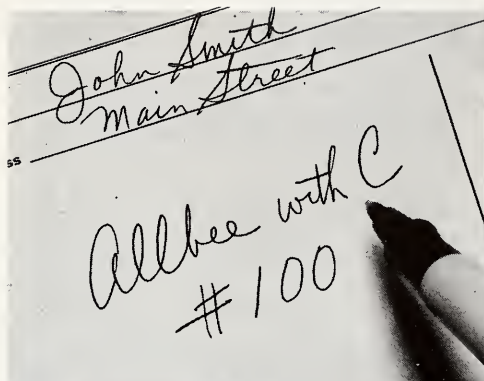 John Smith
Main Street
ss
Allbee with C
#100